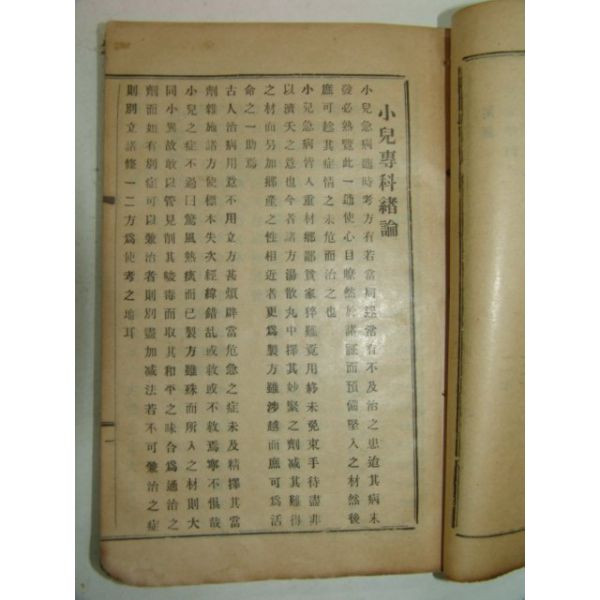 小兒專科緒論
小兒急病臨時考方有若當病理常有不及治之患迨其病未
發必熟覽此一通使心目瞭然於諸証而預備堅入之材然後
應可趁其症情之未危而治之也
小兒急病皆入重材鄉鄙貧家猝難覓用終未免束手待盡非
以濟夭之意也今者諸方湯散丸中擇其妙緊之劑减其難得
之材而另加鄉產之性相近者更爲製方雖涉越而應可爲活
命之一助焉
古人治病用意不用立方甚煩辟當危急之症未及精擇其當
劑雜施諸方使標本失次經緯錯乱或救或不救焉寧不惧哉
小兒之症不過曰驚風熱痰而已製方雖殊而所入之材則大
同小異故敢以管見削其峻毒而取其和平之味合爲通治之
劑而如有別症可以兼治者則別盡加减法若不可兼治之症
則別立諸條一二方爲使考之地耳